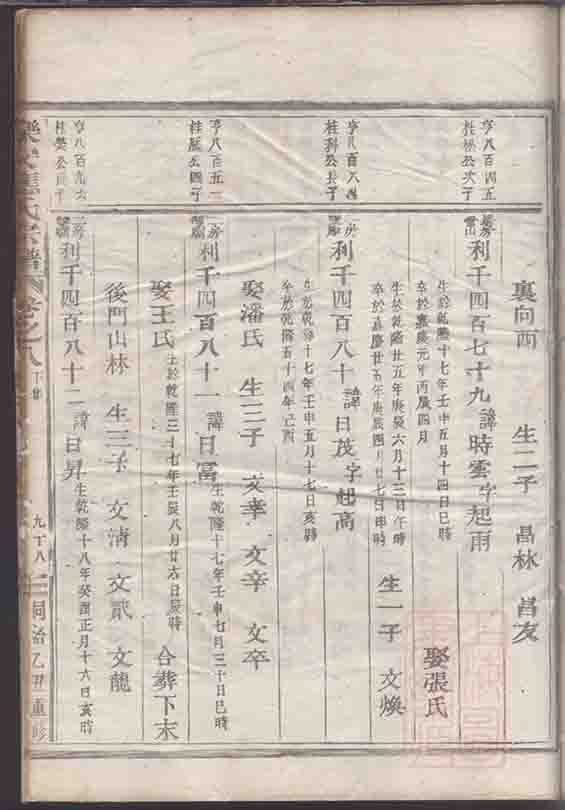 裏向西 生二子 昌林 昌友
亨八百四五
桂松公次子
利千四百七十九 諱時雲字起雨
生於乾隆十七年壬申五月十四日巳時
卒於嘉慶元年丙辰四月
娶張氏
生於乾隆廿五年庚辰六月十三日午時
卒於嘉慶廿五年庚辰四月廿七日申時
生一子 文煥
亨八百六四
桂科公長子
利千四百八十 諱日茂字起高
生於乾隆十七年壬申五月十七日亥時
卒於乾隆五十四年己酉
娶潘氏 生三子 文幸 文辛 文卒
亨八百五一
桂 公四子
利千四百八十一 諱日富
生乾隆十七年壬申七月三十日巳時
娶王氏
生於乾隆三十七年壬辰八月廿六日辰時
合葬下末
後門山林 生三子 文清 文貳 文龍
亨八百九六
桂 公長子
利千四百八十二 諱日昇
生乾隆十八年癸酉正月十六日亥時
氏宗譜 卷之八
九十八 同治乙丑重修